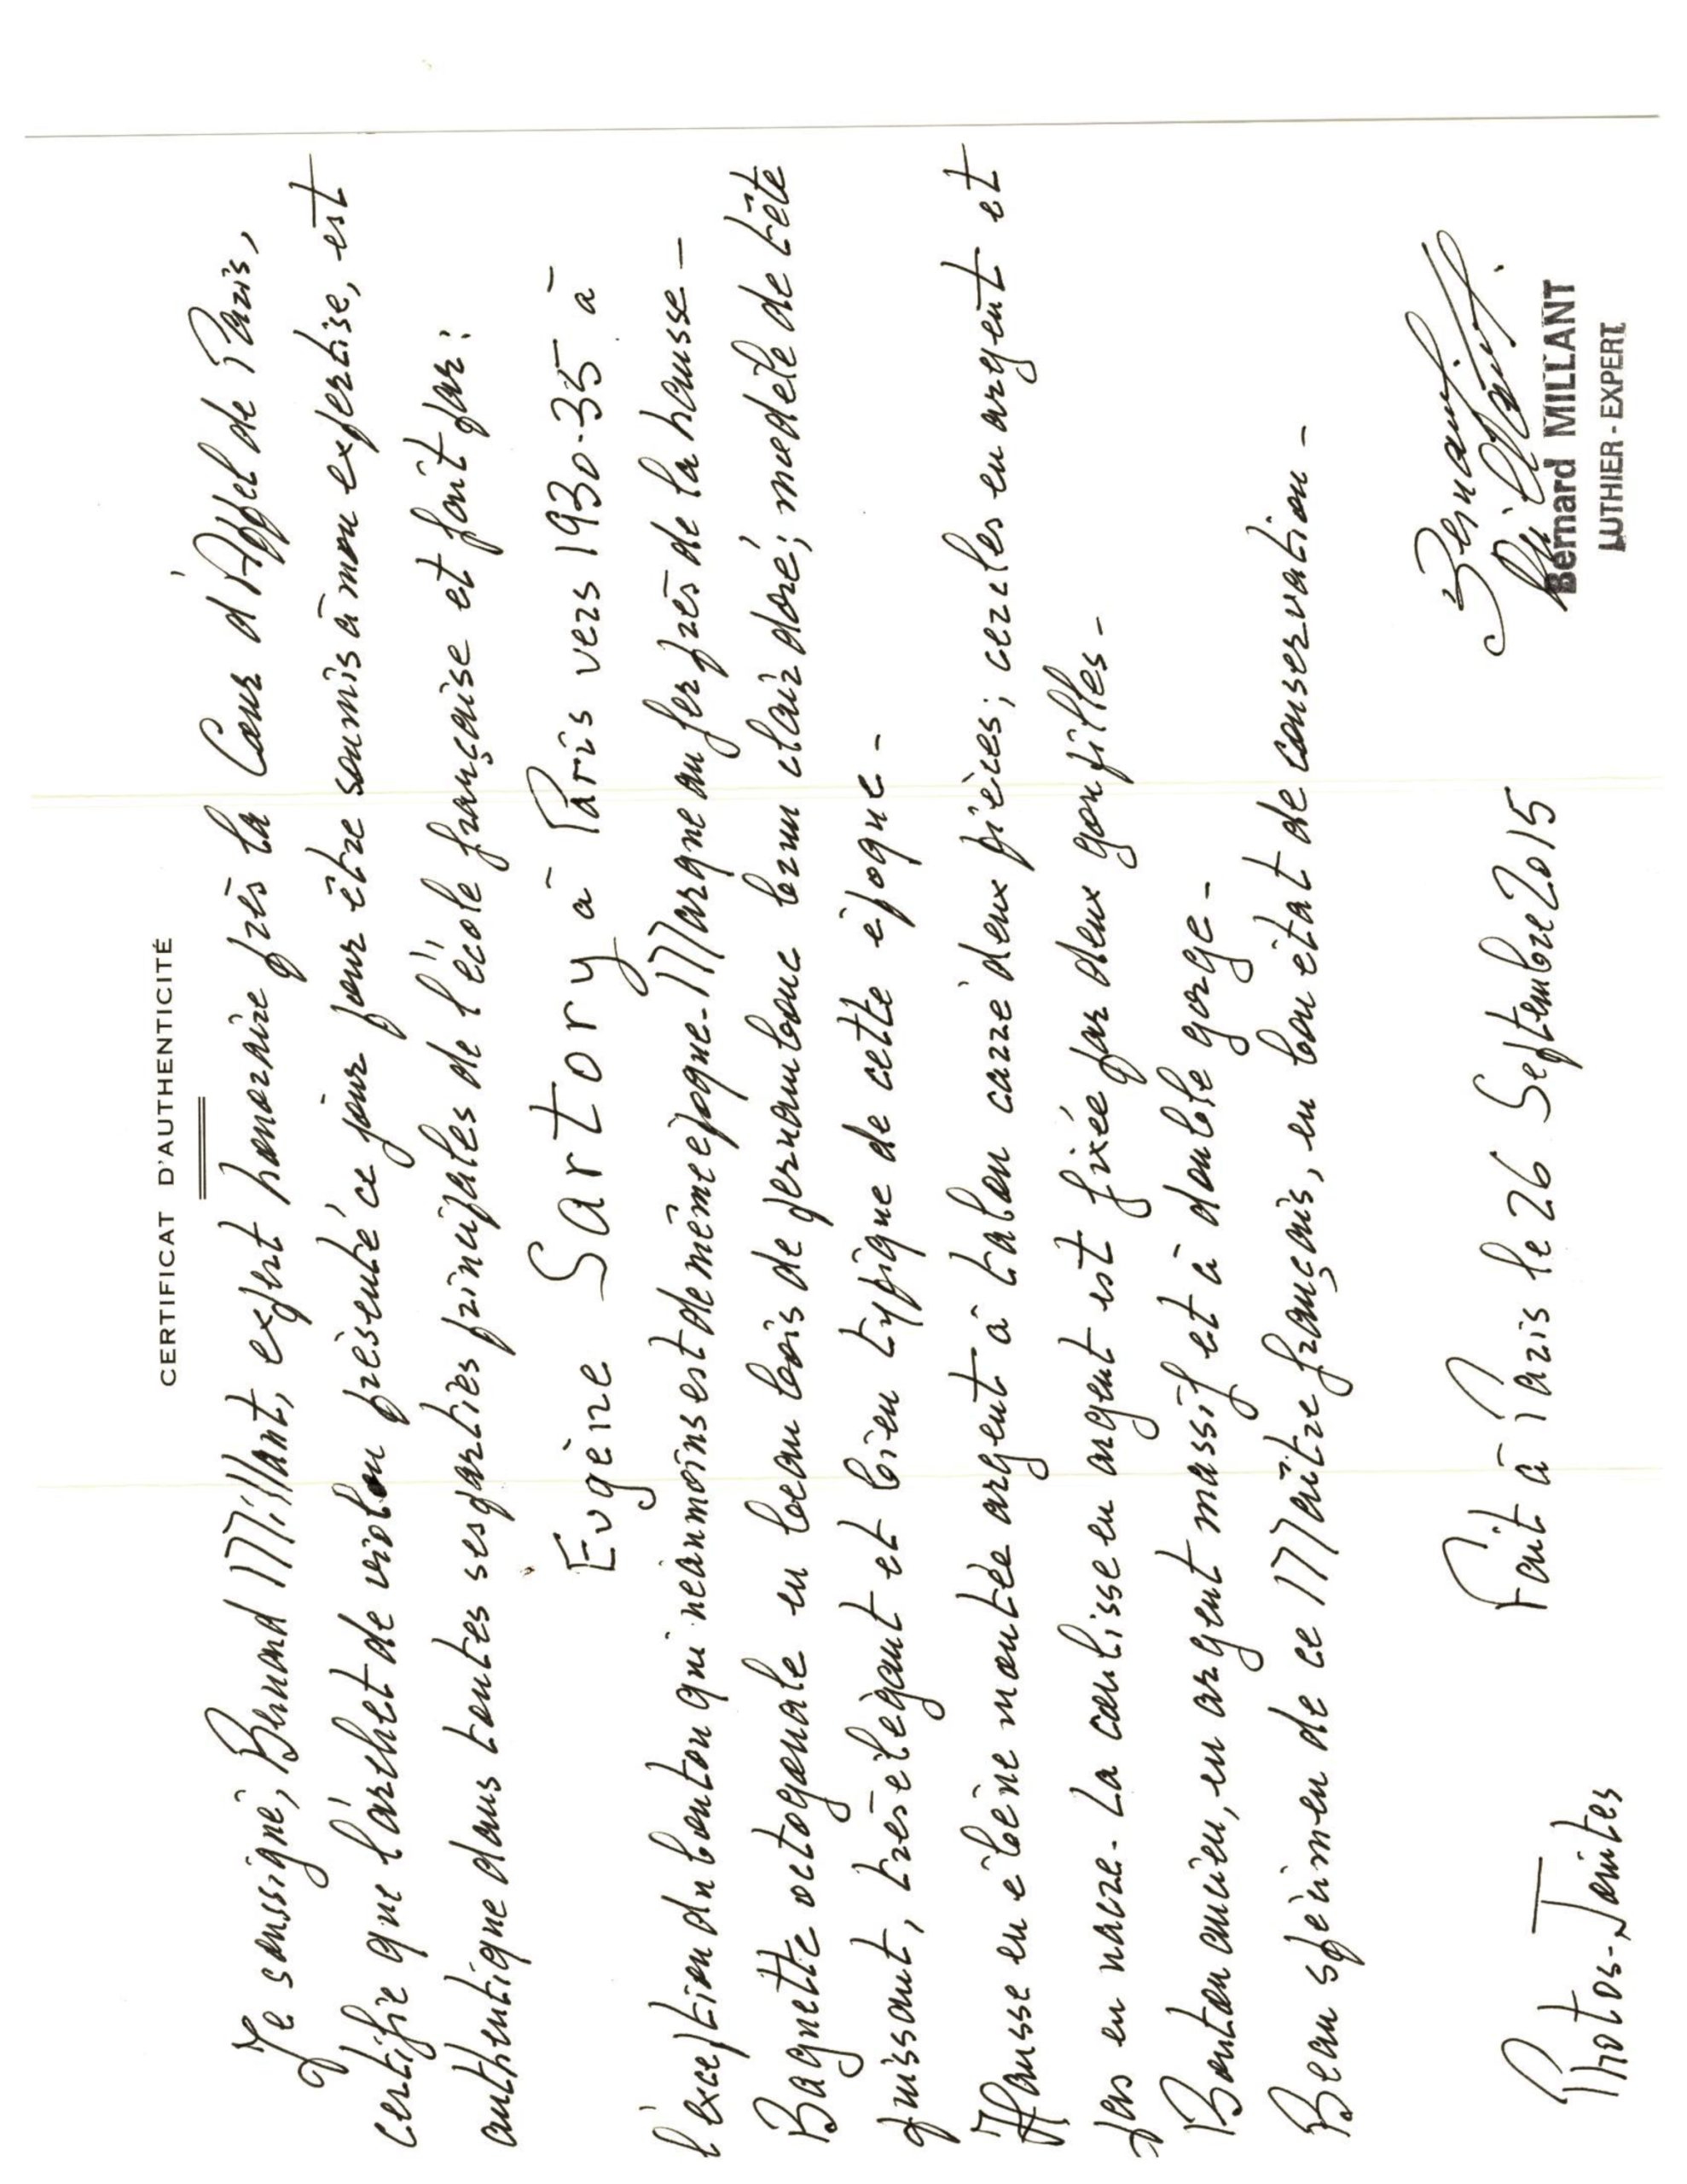 CERTIFICAT D'AUTHENTICITÉ
Je soussigné, Bernard Millant, expert honoraire près la Cour d'Appel de Paris,
certifie que l'archet de violon présenté ce jour pour être soumis à mon expertise, est
authentique dans toutes ses parties principales de l'école française et fait par:
Eugène Sartory à Paris vers 1930-35 à
l'exception du bouton qui néanmoins est de même époque - Marque au fer près de la hausse -
Baguette octogonale en beau bois de pernambouc brun clair doré; modèle de tête
puissant, très élégant et bien typique de cette époque -
Hausse en ébène montée argent à talon carré deux pièces; cercles en argent et
yeux en nacre - La coulisse en argent est fixée par deux goupilles -
Bouton ancien, en argent massif et à double gorge -
Beau spécimen de ce Maître français, en bon état de conservation -
Fait à Paris le 26 Septembre 2015
Photos-Jointes
Bernard Millant
Bernard MILLANT
LUTHIER - EXPERT